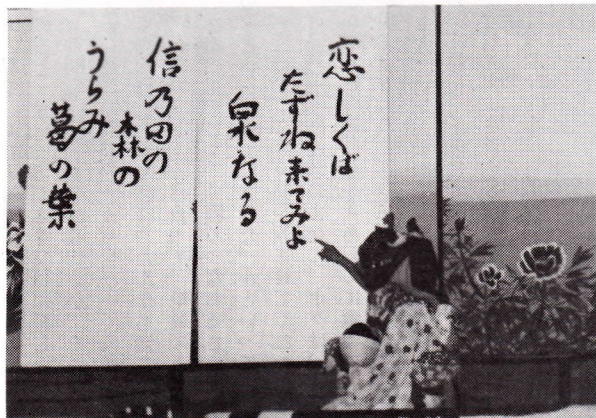 恋しくば
たずね来てみよ
泉なる
信乃田の
森の
うらみ
葛の葉